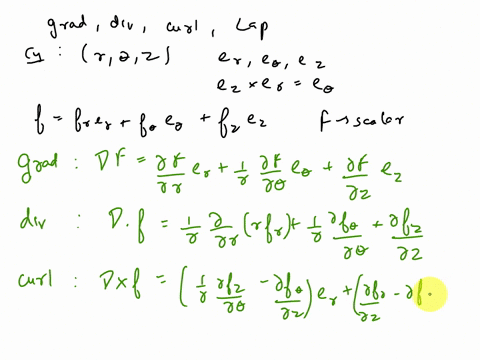 grad, div, curl, Lap
Cy : (r, θ, z) e_r, e_θ, e_z
e_z × e_r = e_θ
f = f_r e_r + f_θ e_θ + f_z e_z F → scalar
grad : ∇F = ∂F/∂r e_r + 1/r ∂F/∂θ e_θ + ∂F/∂z e_z
div : ∇.f = 1/r ∂/∂r (r f_r) + 1/r ∂f_θ/∂θ + ∂f_z/∂z
curl : ∇×f = (1/r ∂f_z/∂θ - ∂f_θ/∂z) e_r + (∂f_r/∂z - ∂f